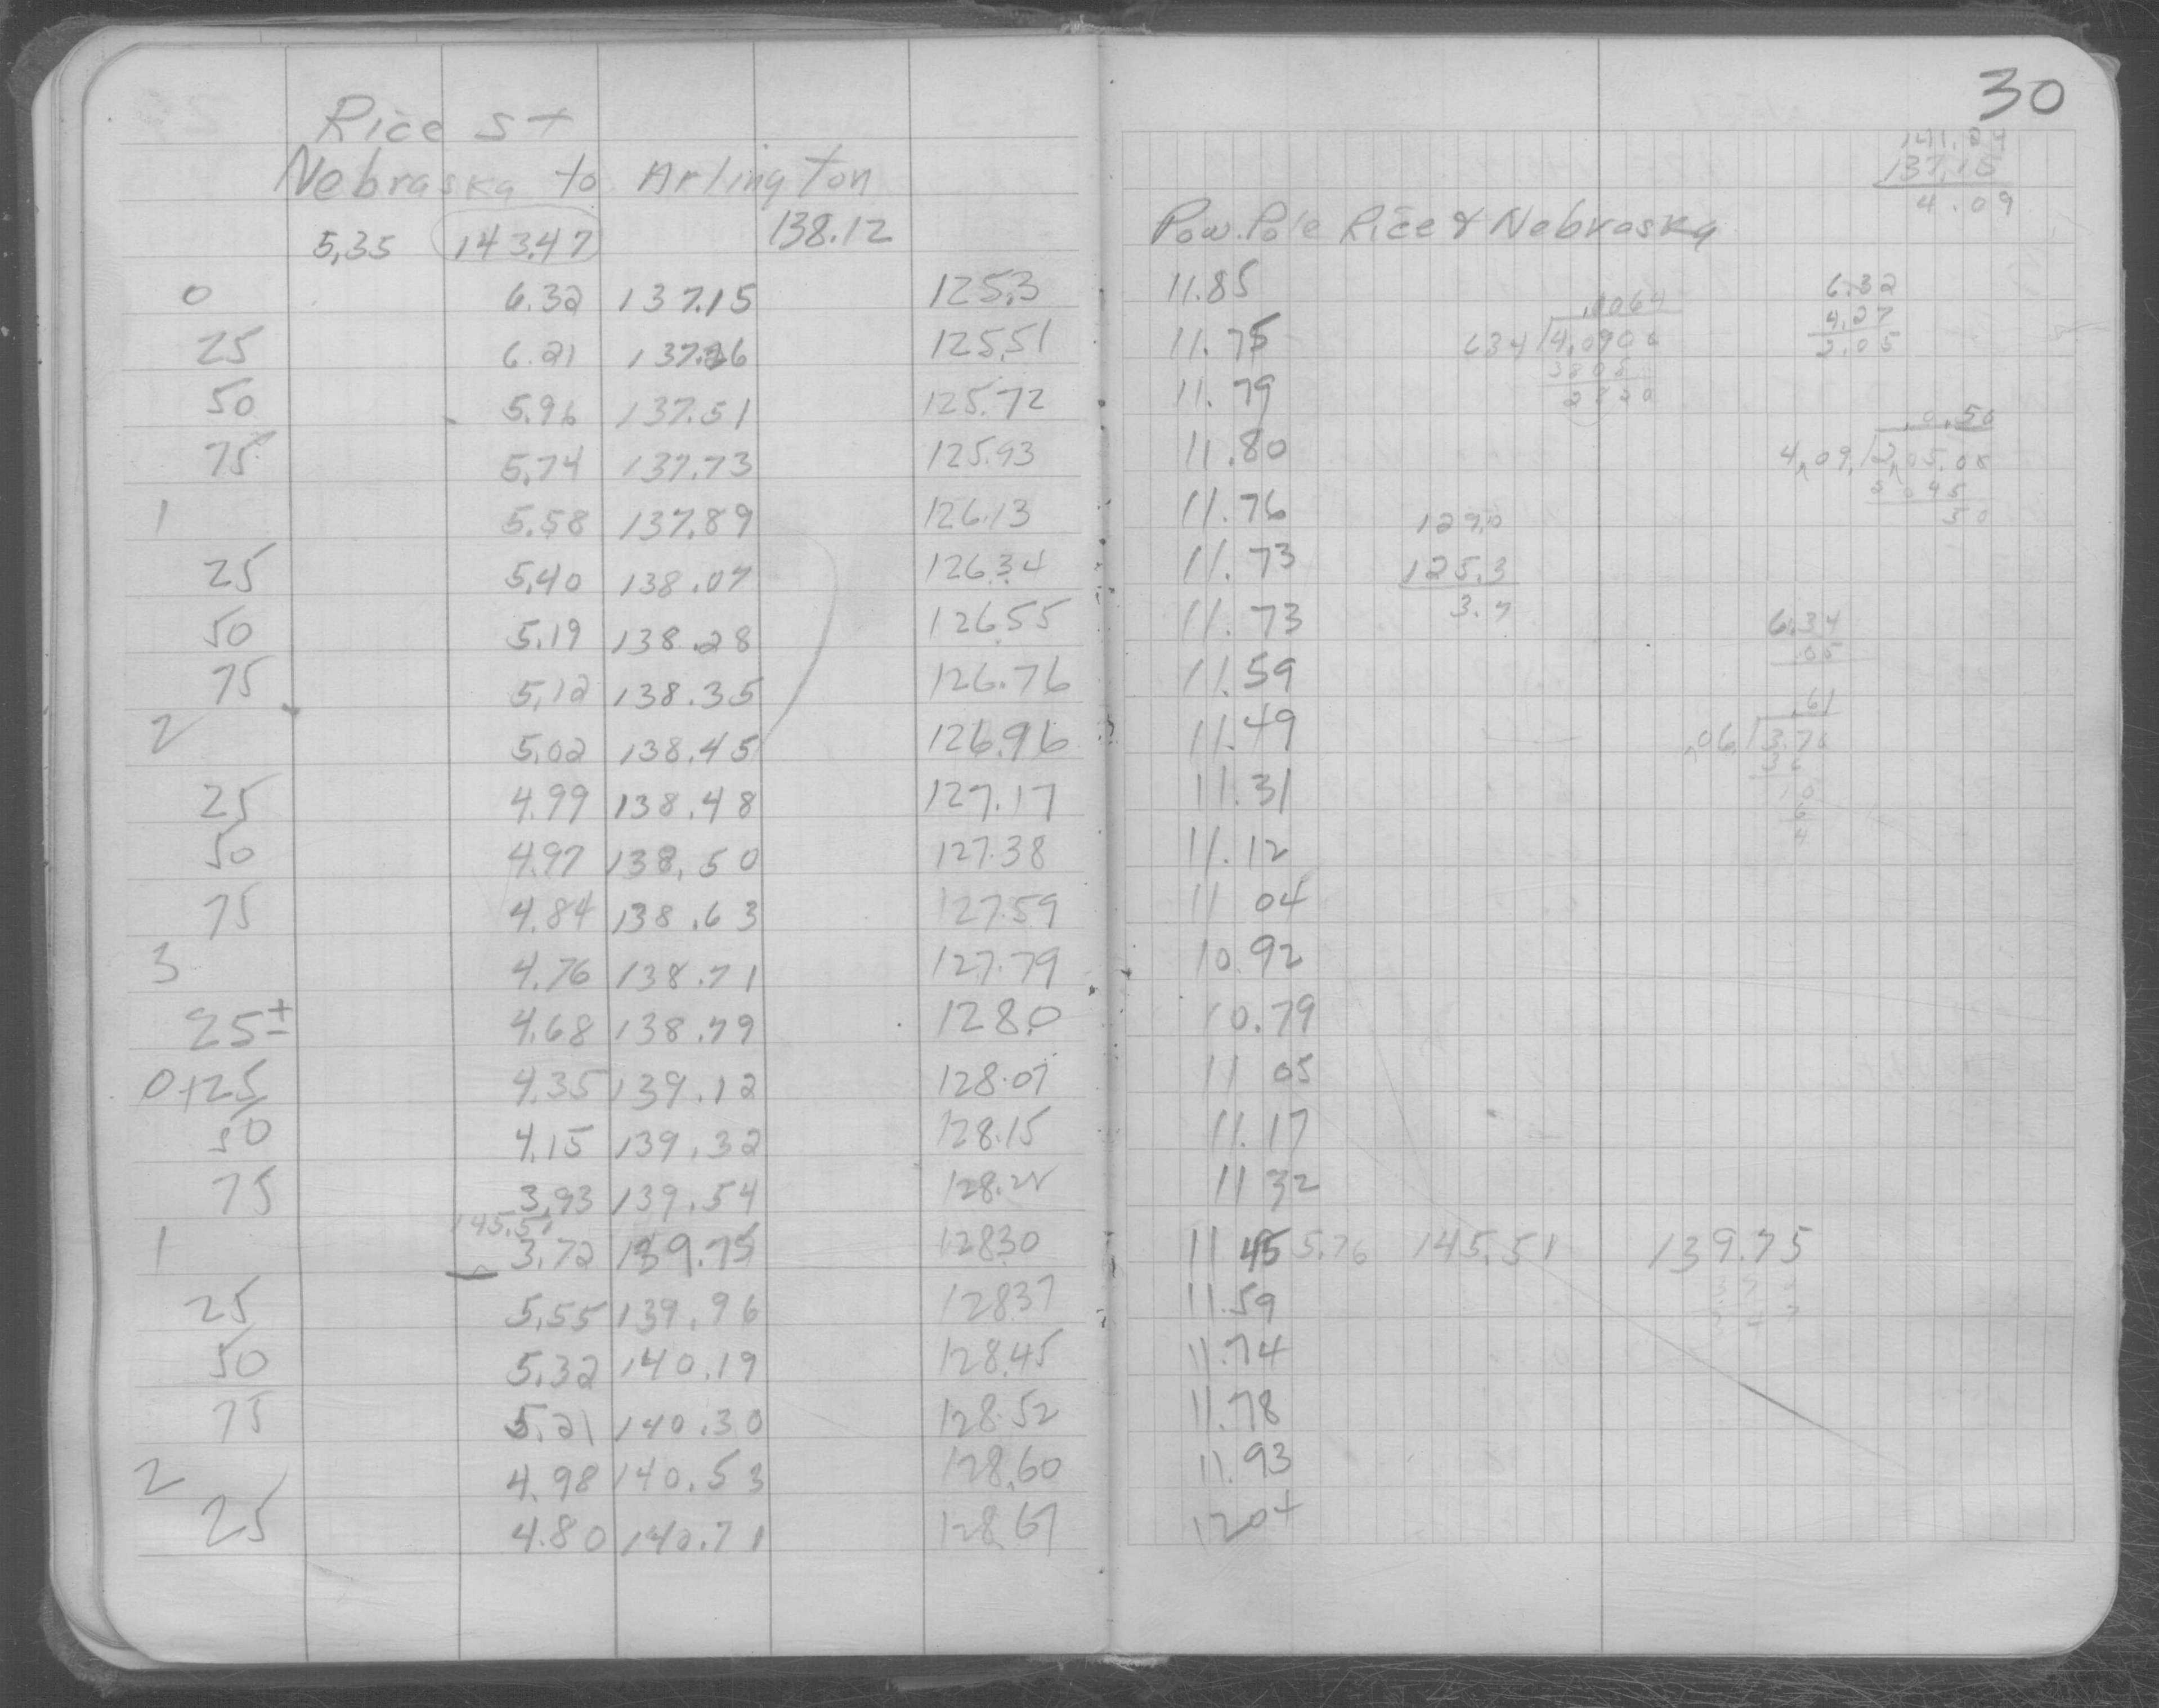 30
Rice St
Nebraska to Arlington
5.35 143.47 138.12 Pow. Pole Rice & Nebraska
0 6.32 137.15 125.3 11.85
25 6.21 137.26 125.51 11.75
50 5.96 137.51 125.72 11.79
75 5.74 137.73 125.93 11.80
1 5.58 137.89 126.13 11.76
25 5.40 138.07 126.34 11.73
50 5.19 138.28 126.55 11.73
75 5.12 138.35 126.76 11.59
2 5.02 138.45 126.96 11.49
25 4.99 138.48 127.17 11.31
50 4.97 138.50 127.38 11.12
75 4.84 138.63 127.59 11 04
3 4.76 138.71 127.79 10.92
25± 4.68 138.79 128.0 10.79
0+25 4.35 139.12 128.07 11 05
50 4.15 139.32 128.15 11.17
75 3.93 139.54 128.22 11 32
145.51
1 3.72 139.75 128.30 11 45 5.76 145.51 139.75
25 5.55 139.96 128.37 11.59
50 5.32 140.19 128.45 11.74
75 5.21 140.30 128.52 11.78
2 4.98 140.53 128.60 11.93
25 4.80 140.71 128.67 12 04
141.24
137.15
4.09
6.32
4.27
2.05
.0064
634 4.0900
3804
2820
.0.50
4.09. 2.05.00
2 045
50
129.0
125.3
3.7
6.34
.05
.61
.06. 3.70
36
10
6
4